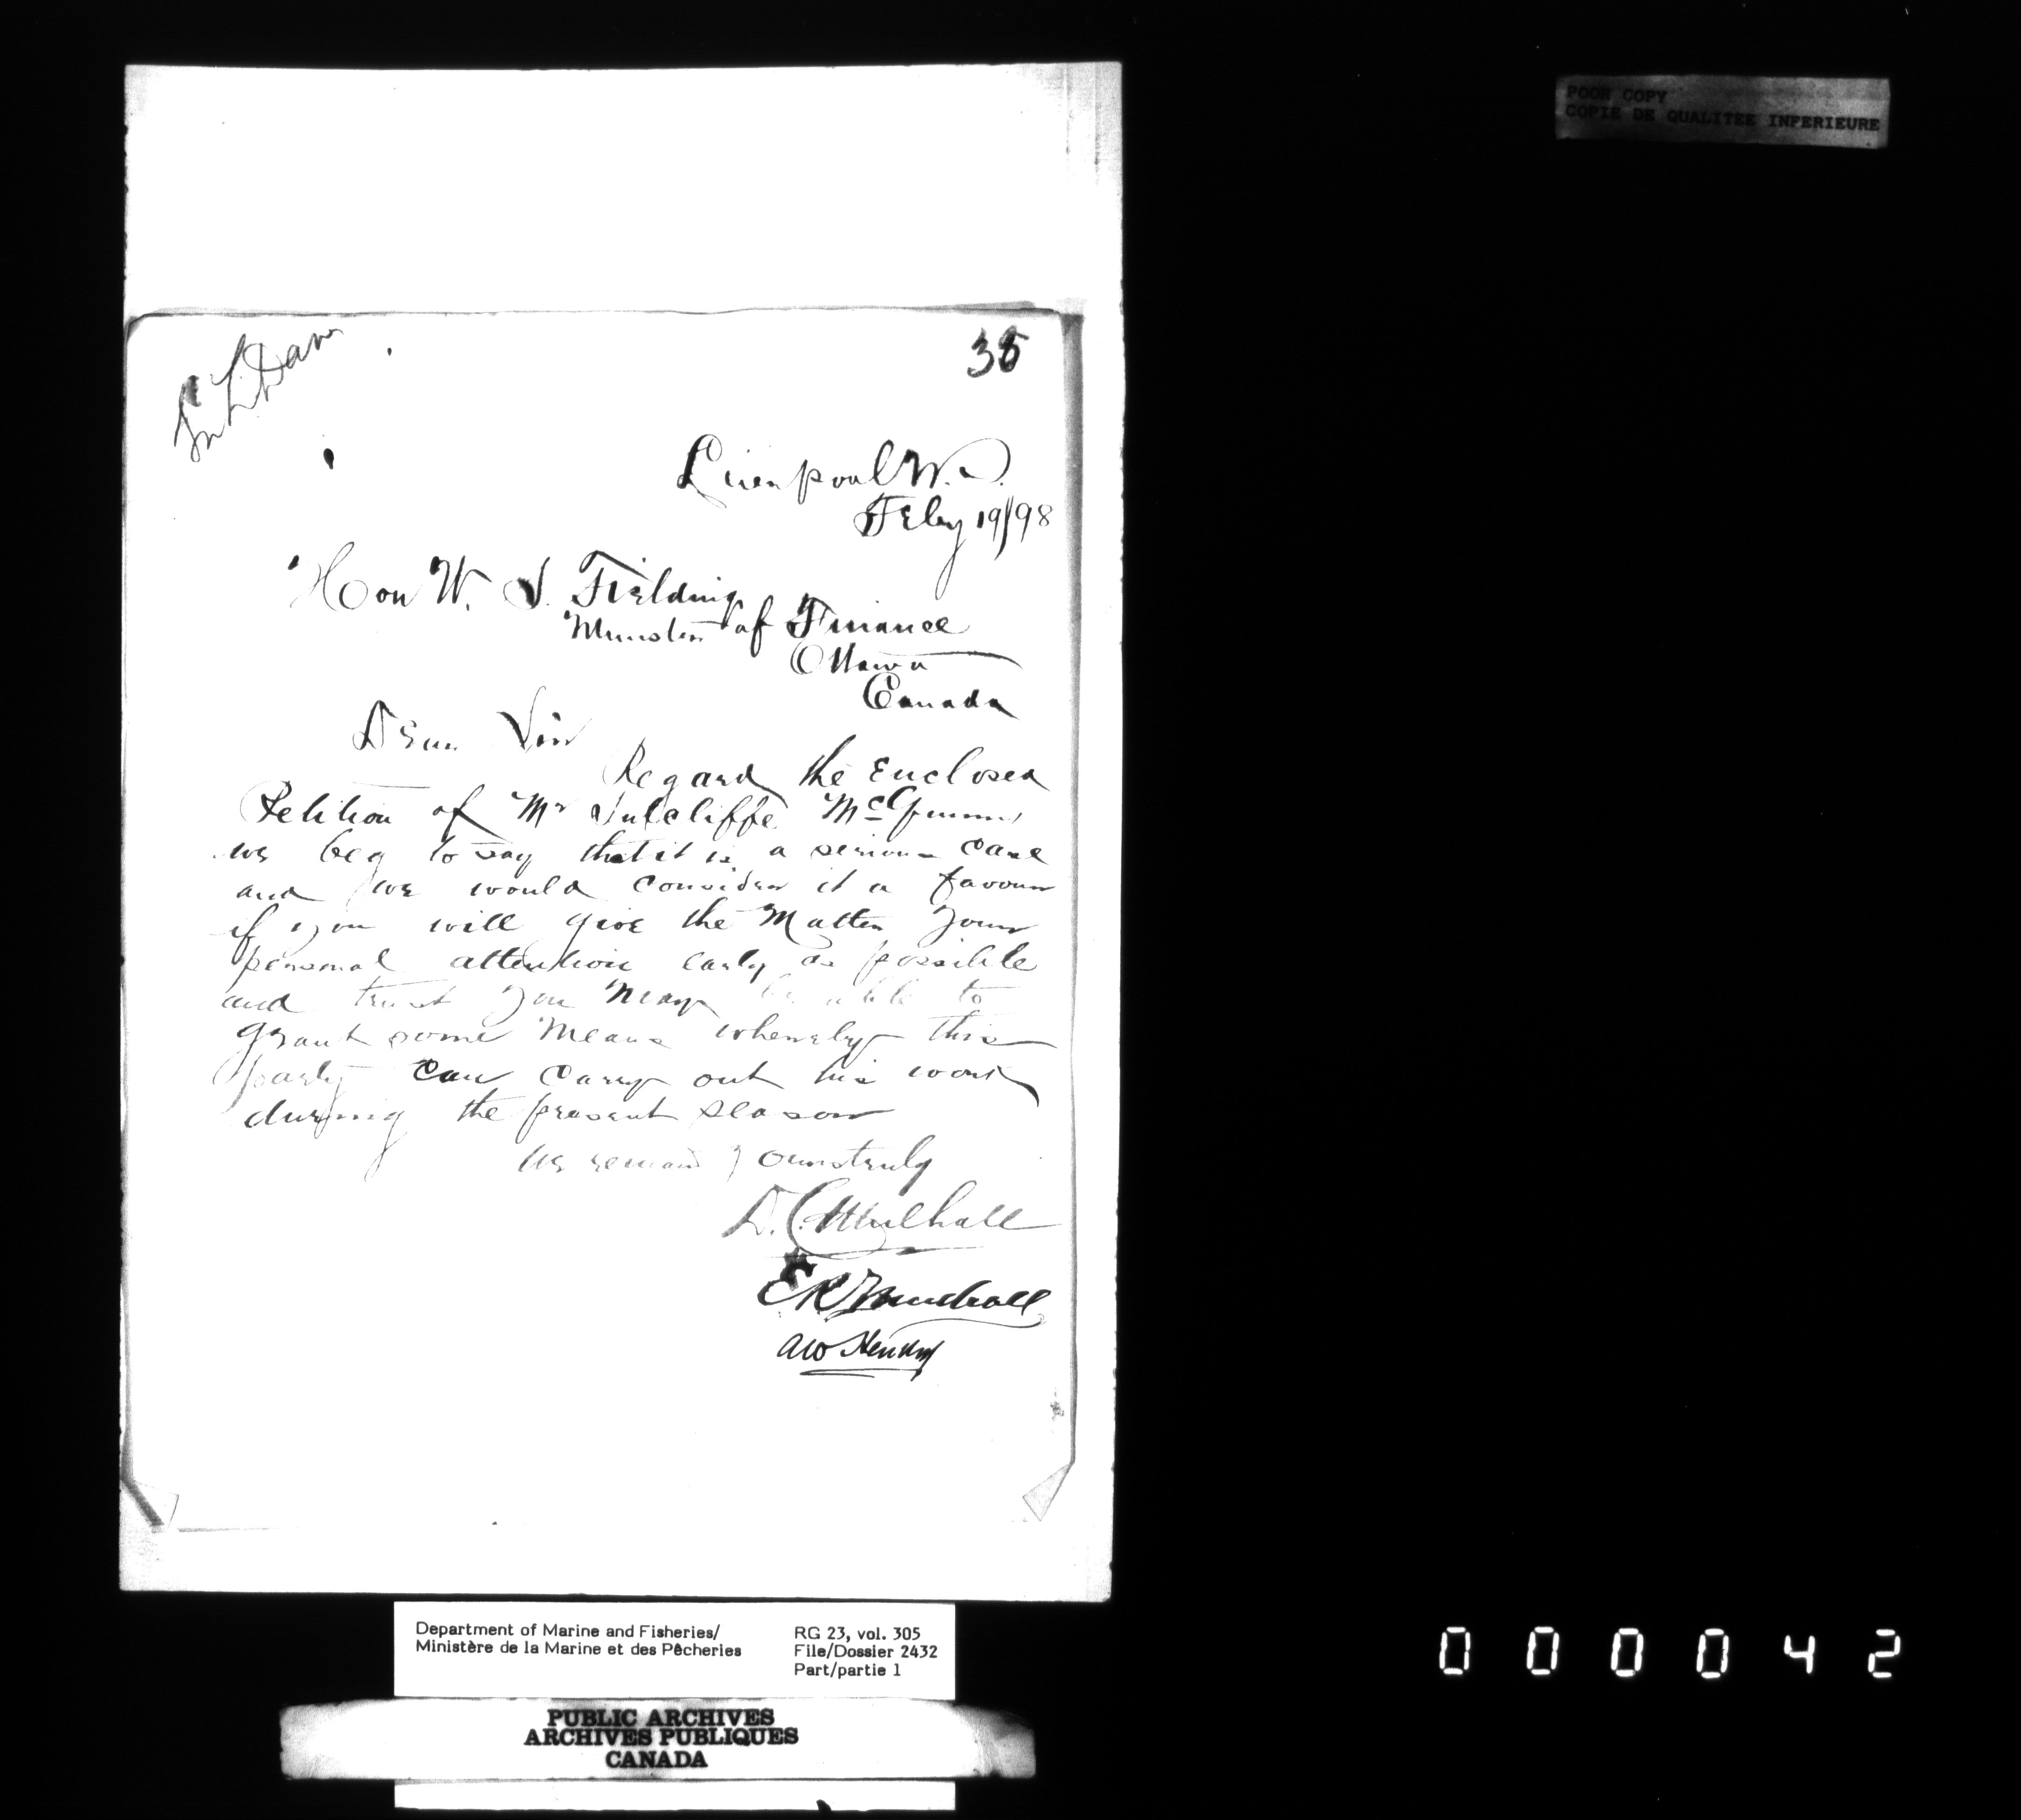 POOR COPY
COPIE DE QUALITEE INFERIEURE
38
Liverpool N.S.
Feby 19/98
Hon W. S. Fielding
Minister of Finance
Ottawa
Canada
Dear Sir
Regard the Enclosed
Petition of Mr Sutcliffe
we beg to say that it is a serious case
and we would consider it a favour
if you will give the Matter your
personal attention early as possible
and trust you May be able to
grant some Means whereby this
party can carry out his work
during the present season
We remain yours truly
D. C. Mulhall
E R Mulhall
AW Hendry
Department of Marine and Fisheries/
Ministère de la Marine et des Pêcheries
RG 23, vol. 305
File/Dossier 2432
Part/partie 1
PUBLIC ARCHIVES
ARCHIVES PUBLIQUES
CANADA
000042